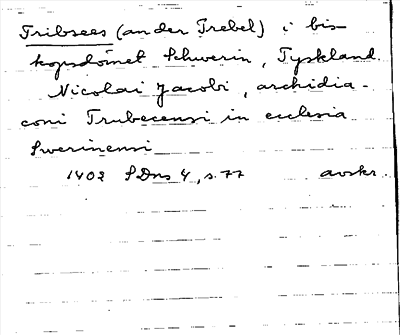 Tribsees (an der Trebel) i bis-
kopsdömet Schwerin, Tyskland.
Nicolai Jacobi, archidia-
coni Trubecensi in ecclesia
Swerinensi
1402 SDns 4, s. 77 avskr.